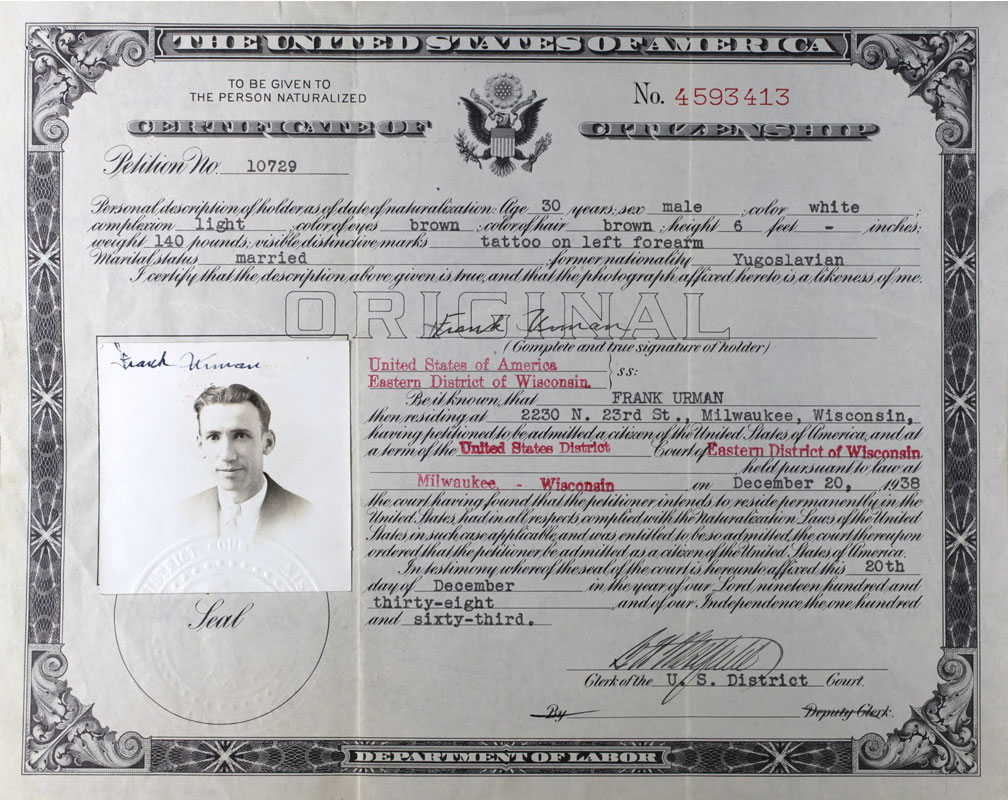 THE UNITED STATES OF AMERICA
TO BE GIVEN TO
THE PERSON NATURALIZED
No. 4593413
CERTIFICATE OF CITIZENSHIP
Petition No. 10729
Personal description of holder as of date of naturalization: Age 30 years; sex male ; color white ;
complexion light ; color of eyes brown ; color of hair brown ; height 6 feet - inches;
weight 140 pounds; visible distinctive marks tattoo on left forearm
Marital status married ; former nationality Yugoslavian
I certify that the description above given is true, and that the photograph affixed hereto is a likeness of me.
ORIGINAL
Frank Urman
(Complete and true signature of holder)
Frank Urman
United States of America
Eastern District of Wisconsin. } ss:
Be it known, that FRANK URMAN
then residing at 2230 N. 23rd St., Milwaukee, Wisconsin,
having petitioned to be admitted a citizen of the United States of America, and at
a term of the United States District Court of Eastern District of Wisconsin.
held pursuant to law at
Milwaukee, - Wisconsin on December 20, 1938
the court having found that the petitioner intends to reside permanently in the
United States, had in all respects complied with the Naturalization Laws of the United
States in such case applicable, and was entitled to be so admitted, the court thereupon
ordered that the petitioner be admitted as a citizen of the United States of America.
In testimony whereof the seal of the court is hereunto affixed this 20th
day of December in the year of our Lord nineteen hundred and
thirty-eight , and of our Independence the one hundred
and sixty-third.
Seal
Clerk of the U. S. District Court.
By Deputy Clerk.
DEPARTMENT OF LABOR